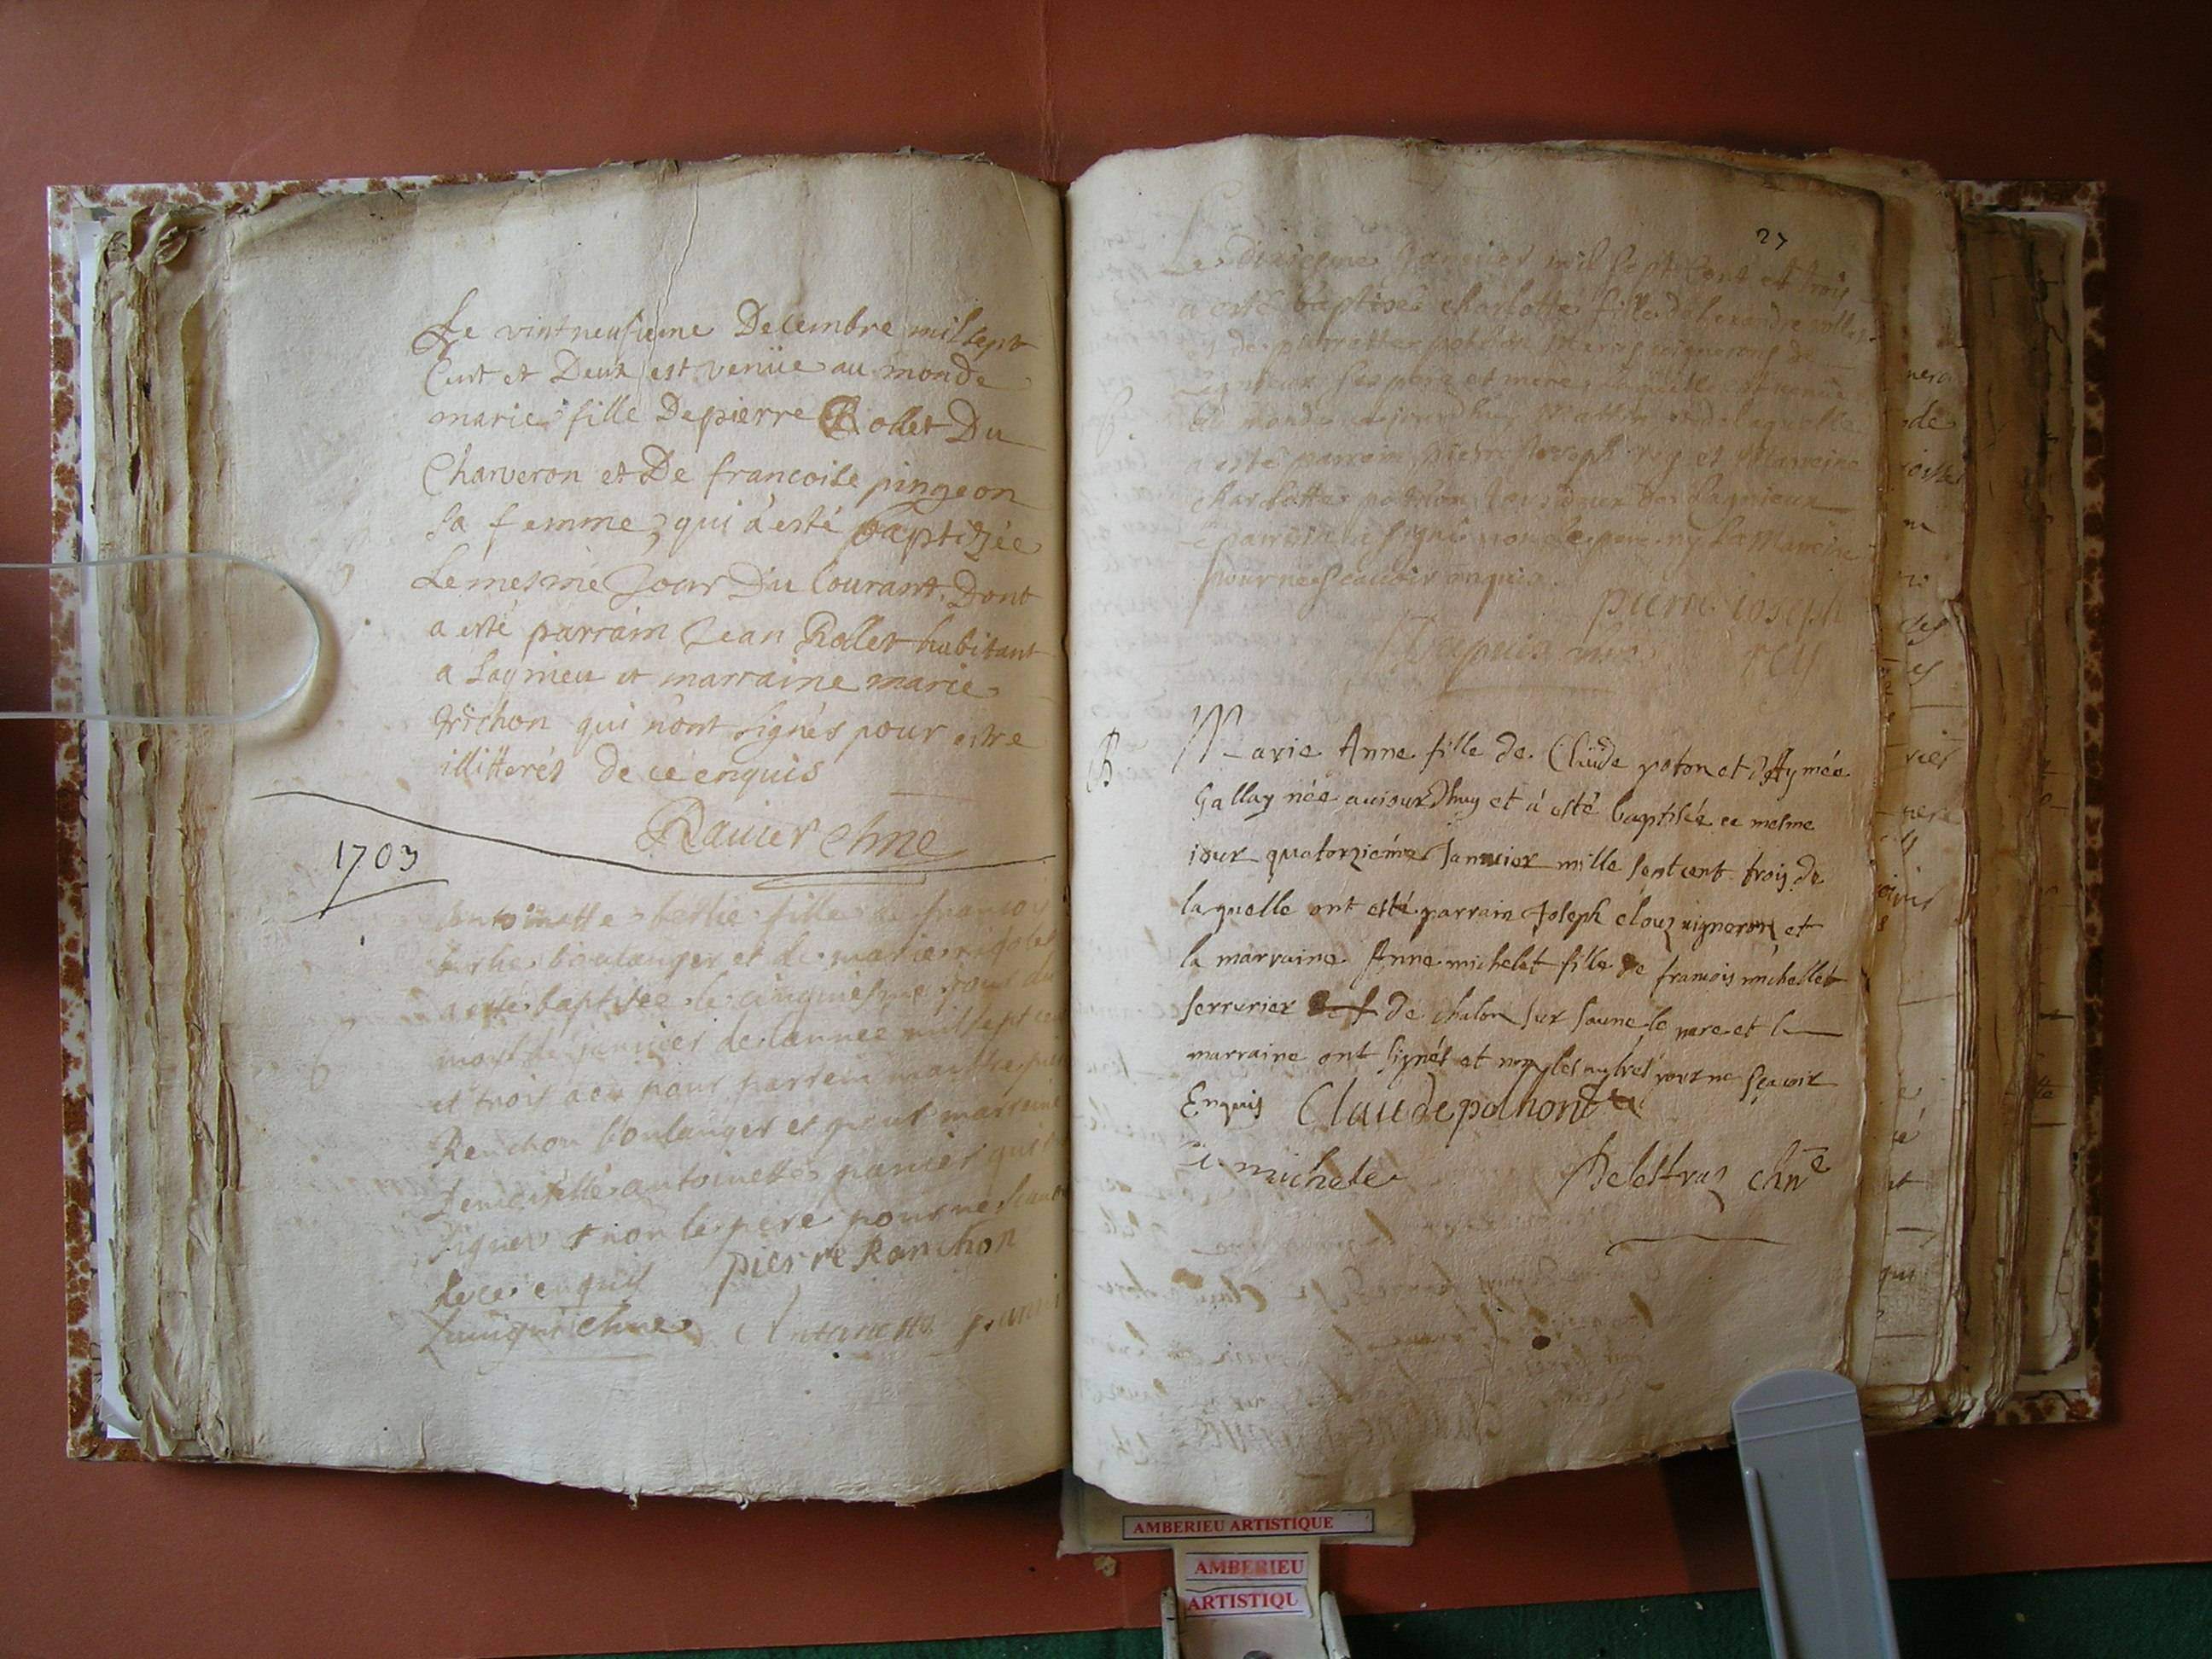 Le vintneufieme Decembre mil sept
Cent et Deux est venüe au monde
marie fille De pierre Rollet Du
Charveron et De francoise pingeon
sa femme, qui a esté baptizée
Le mesme Jour Du Courant. Dont
a esté parrain Jean Rollet habitant
a Lagnieu et marraine marie
qui n'ont signés pour estre
illitterés de ce enquis
Ravier chne
1703
Antoinette berlie fille de francois
berlie boulanger et de marie rigolet
a esté baptisée le cinquiesme jour du
mois de janvier de lannee mil sept cen
et trois a eu pour parrein maistre pie
Renchon boulanger et pour marreine
Demoiselle antoinette panier qui
signer et non le pere pour ne scauo
de ce enquis pierre Ranchon
chne Antoinette panni
27
Le dixiesme Janvier mil sept cent et trois
a esté baptisée charlotte fille dalexandre
et de pierrette pothon maries vignerons de
Lagnieux ses pere et mere laquelle est venue
au monde aujourdhuy matin et de laquelle
a esté parrein pierre Joseph rey et Marreine
charlotte pothon de Lagnieux
le parrein a signé non le pere ny La Marreine
pour ne scauoir enquis.
pierre ioseph
Dupuis rey
B
Marie Anne fille de Claude poton et d'Aymée
Gallay née auiourdhuy et a esté baptisée ce mesme
iour quatorzieme Janvier mille sept cent trois de
laquelle ont esté parrain Joseph vigneron et
la marraine Anne michelet fille de francois michellet
serrurier de chalon sur saune le pare et la
marraine ont signés et non les autres pour ne sçavoir
Enquis Claude pothont
A. michele
Delestraz chne
AMBERIEU ARTISTIQUE
AMBERIEU
ARTISTIQU